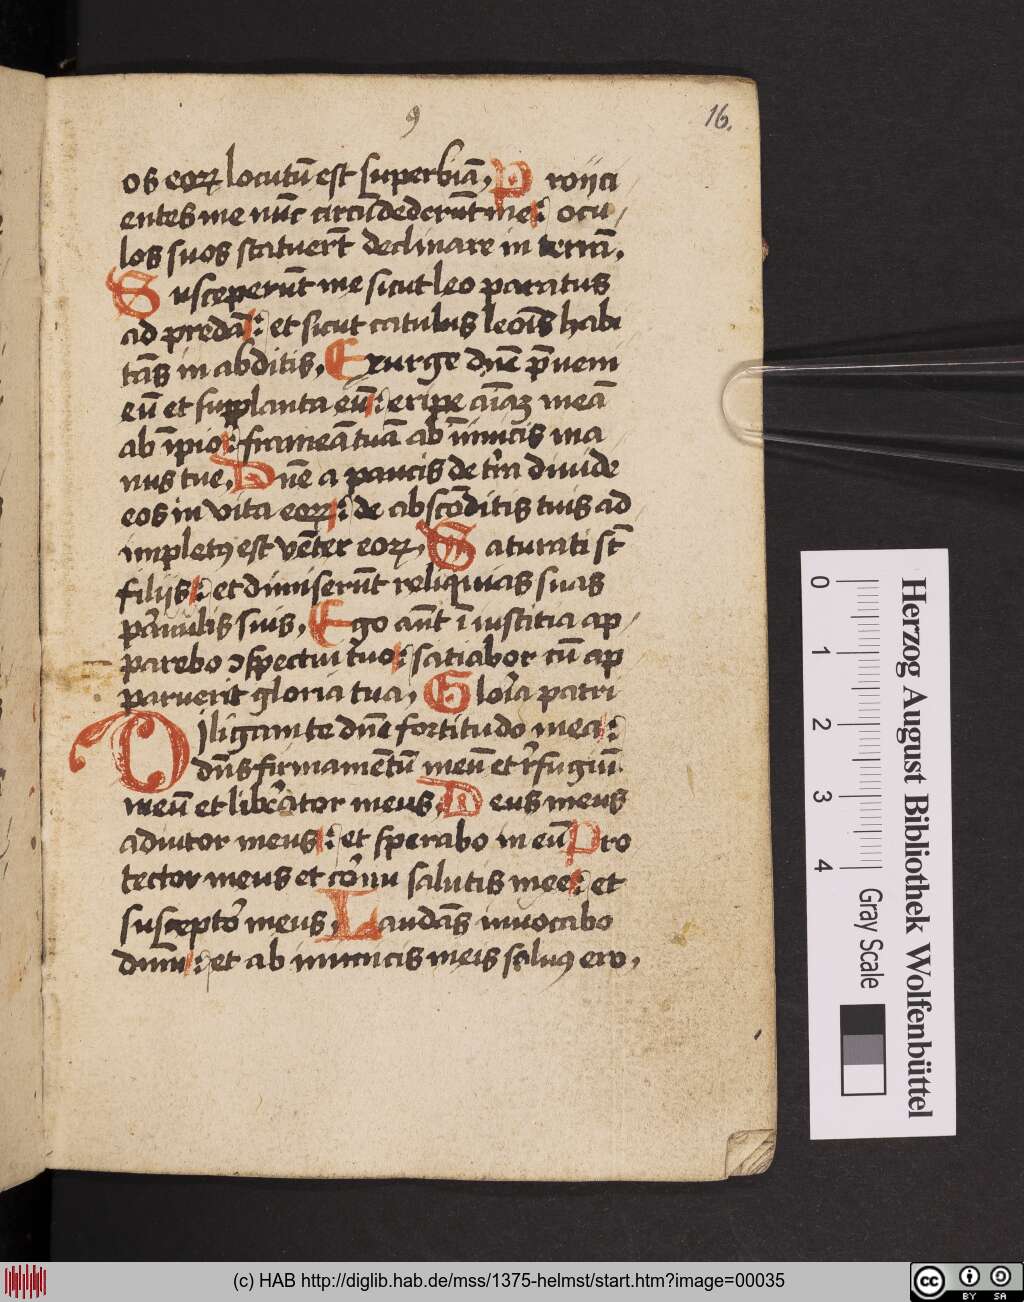 9
16.
os eoꝝ locutū est superbiā, Proijci
entes me nūc circūdederūt me: ocu/
los suos statuerūt declinare in terrā,
Susceperūt me sicut leo paratus
ad predā: et sicut catulus leoīs habi
tās in abditis, Exurge dn̄e p̄veni
eū et supplanta eū: eripe aīaꝫ meā
ab īpio: frameā tuā ab īimicis ma
nus tue, Dn̄e a paucis de tr̄a divide
eos in vita eoꝝ: de abscōditis tuis ad
impletꝰ est vēter eoꝝ, Saturati st̄
filijs: et dimiserūt reliquias suas
parvulis suis, Ego aūt ī iusticia ap/
parebo ↄspectui tuo: satiabor cū ap
paruerit gloria tua, Glor̄a patri
Diligam te dn̄e fortitudo mea:
dn̄s firmamētū meū et r̄fugiū
meū et liberator meus, Deus meus
adiutor meus: et sperabo in eū Pro
tector meus et cornu salutis mee: et
susceptor meus, Laudās invocabo
dn̄m: et ab inimicis meis salvꝰ ero,
0 1 2 3 4
Gray Scale
Herzog August Bibliothek Wolfenbüttel
(c) HAB http://diglib.hab.de/mss/1375-helmst/start.htm?image=00035
cc BY SA